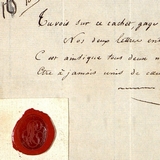 Tu vois sur ce cachet gage
Nos deux lettres en
C'est ainsi que tous deux n
Etre à jamais unis de cœu